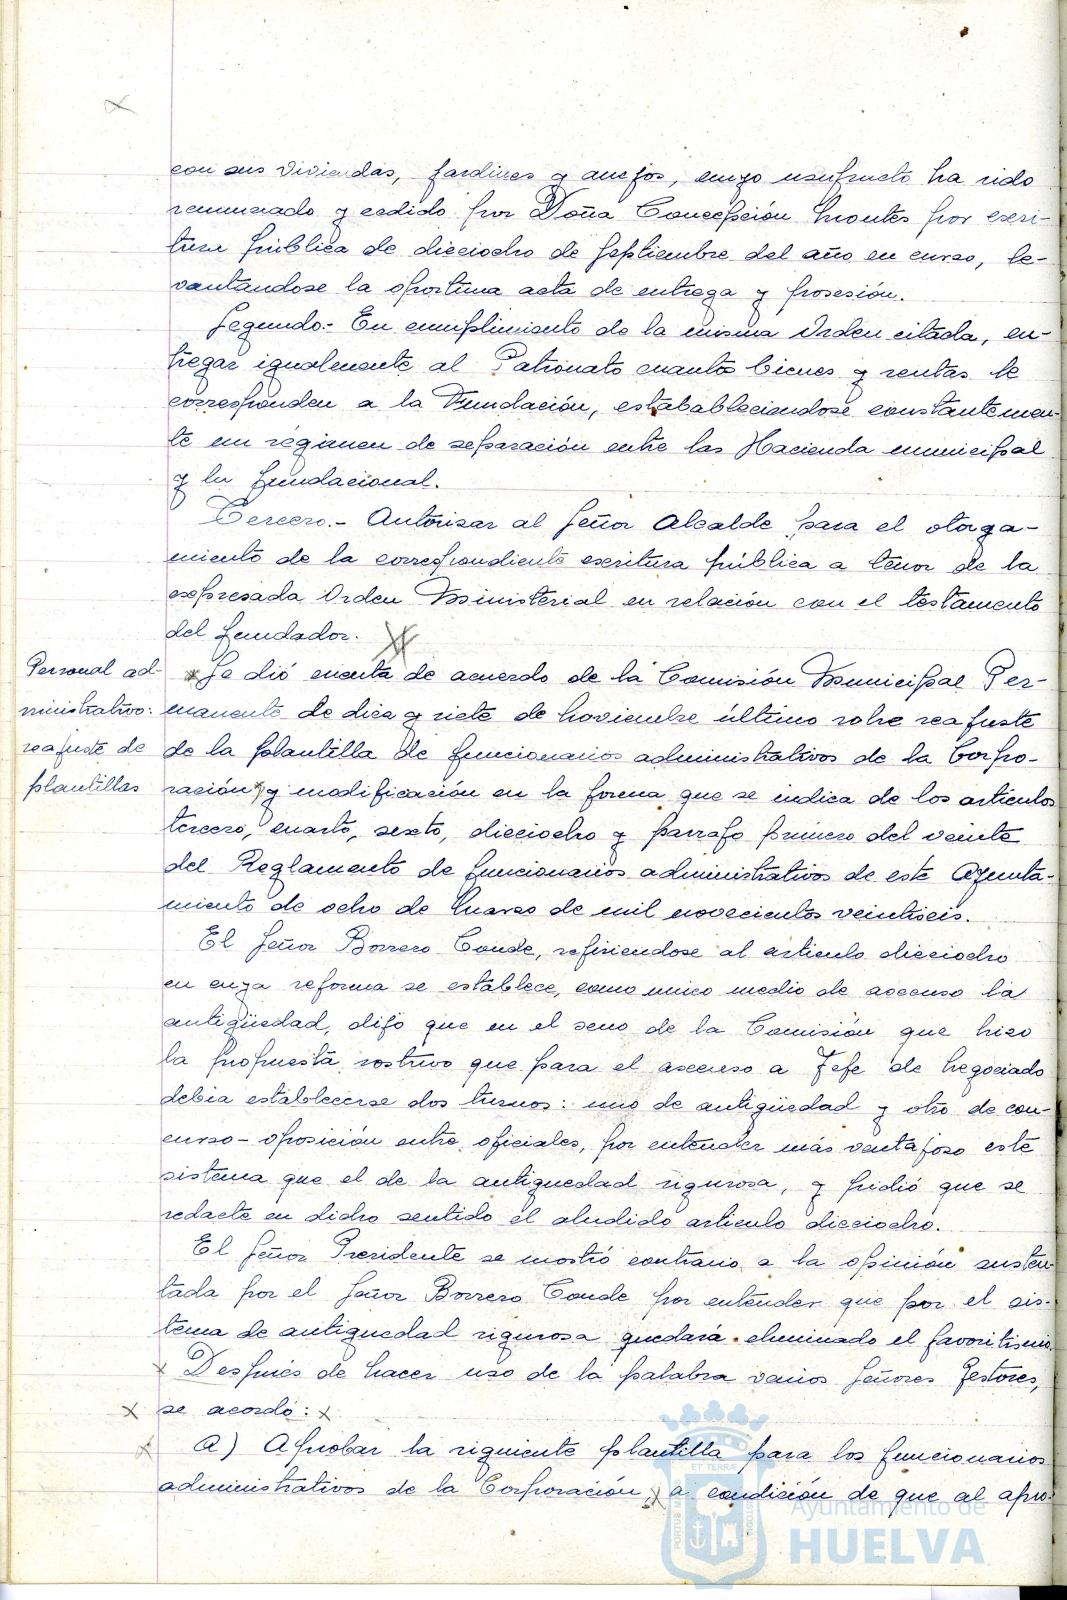 con sus viviendas, jardines y anejos, cuyo usufructo ha sido
renunciado y cedido por Doña Concepción Montes por escri-
tura pública de dieciocho de septiembre del año en curso, le-
vantándose la oportuna acta de entrega y posesión.
Segundo.- En cumplimiento de la misma Orden citada, en-
tregar igualmente al Patronato cuantos bienes y rentas le
corresponden a la Fundación, estabableciendose constantemen-
te un régimen de separación entre las Hacienda municipal
y la fundacional.
Tercero.- Autorizar al Señor Alcalde para el otorga-
miento de la correspondiente escritura pública a tenor de la
expresada Orden Ministerial en relación con el testamento
del fundador.
Personal ad-
ministrativo:
reajuste de
plantillas
Se dió cuenta de acuerdo de la Comisión Municipal Per-
manente de diez y siete de Noviembre último sobre reajuste
de la plantilla de funcionarios administrativos de la Corpo-
ración y modificación en la forma que se indica de los artículos
tercero, cuarto, sexto, dieciocho y parrafo primero del veinte
del Reglamento de funcionarios administrativos de este Ayunta-
miento de ocho de Marzo de mil novecientos veintiseis.
El Señor Borrero Conde, refiriendose al articulo dieciocho
en cuya reforma se establece, como unico medio de ascenso la
antigüedad, dijo que en el seno de la Comisión que hizo
la propuesta, sostuvo que para el ascenso a Jefe de Negociado
debia establecerse dos turnos: uno de antigüedad y otro de con-
curso-oposición entre oficiales, por entender más ventajoso este
sistema que el de la antiguedad rigurosa, y pidió que se
redacte en dicho sentido el aludido articulo dieciocho.
El Señor Presidente se mostró contrario a la opinión susten-
tada por el Señor Borrero Conde por entender que por el sis-
tema de antiguedad rigurosa quedará eliminado el favoritismo.
Después de hacer uso de la palabra varios Señores Gestores,
se acordó:
A) Aprobar la siguiente plantilla para los funcionarios
administrativos de la Corporación, a condición de que al apro-
ET TERRÆ
PORTUS MARIS
CUSTODIA
Ayuntamiento de
HUELVA